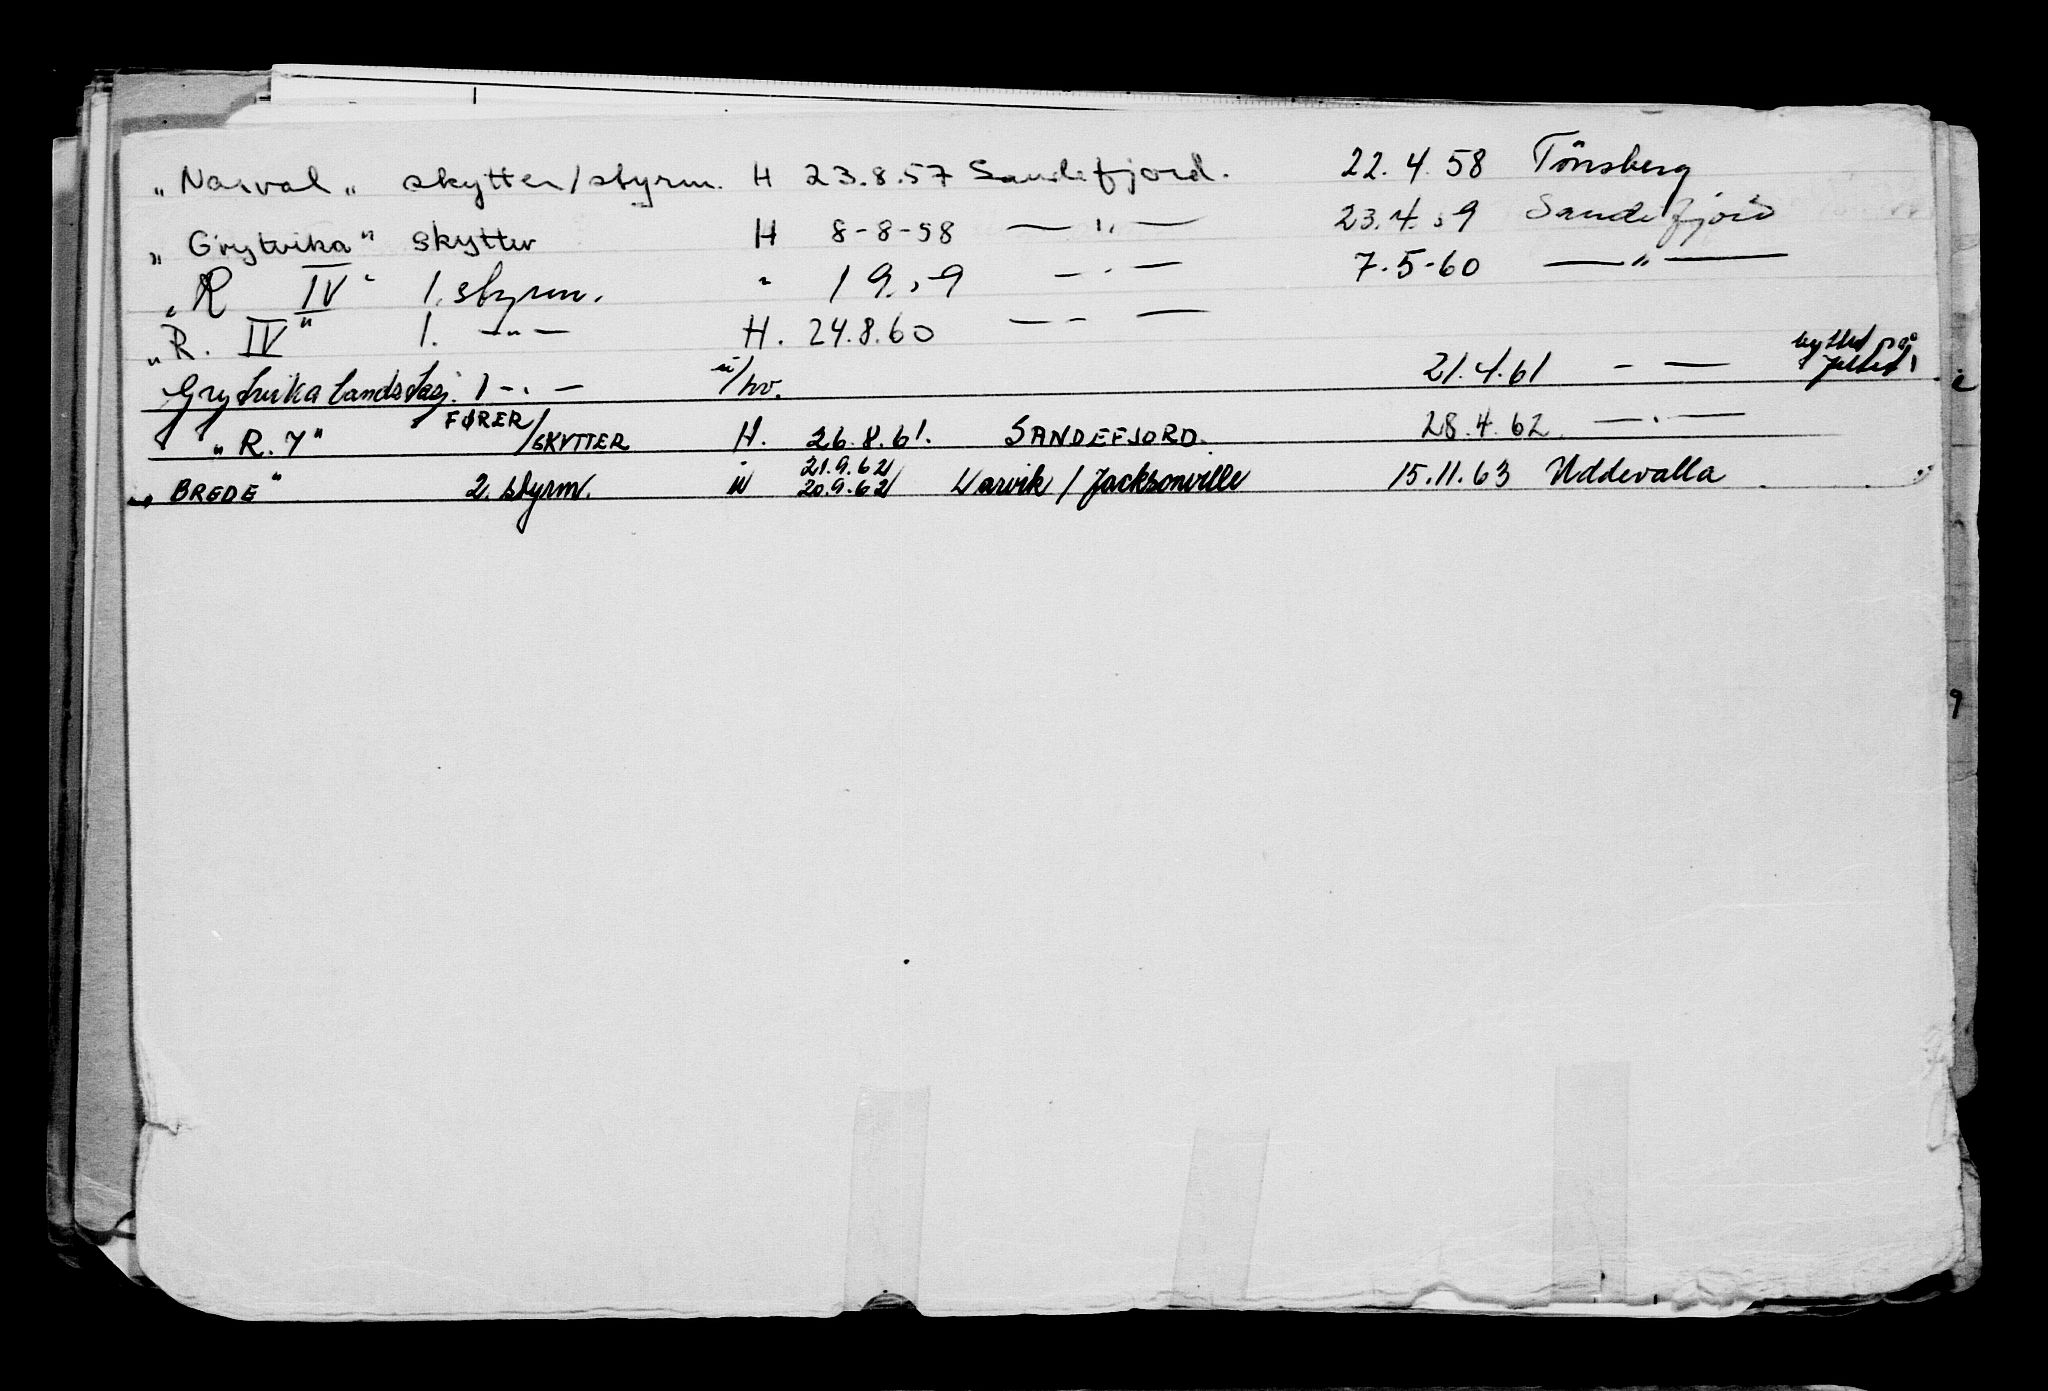 „ Narval „ skytter/styrm. H 23.8.57 Sandefjord. 22.4.58 Tönsberg
„ Grytvika " skytter H 8-8-58 — " — 23.4.59 Sandefjord
„ R IV " 1. styrm. " 1 9.59 — " — 7-5-60 — " —
„ R. IV " 1. — " — H. 24.8.60 — " —
Grytvika landstasj. 1 — " — u/hv. 21.4.61 — — byttet på feltet!
„ R. 7 " FØRER/SKYTTER H. 26.8.61. SANDEFJORD. 28.4.62 — " —
„ BREDE " 2. styrm. u 21.9.62 20.9.62 Larvik / Jacksonville 15.11.63 Uddevalla
9